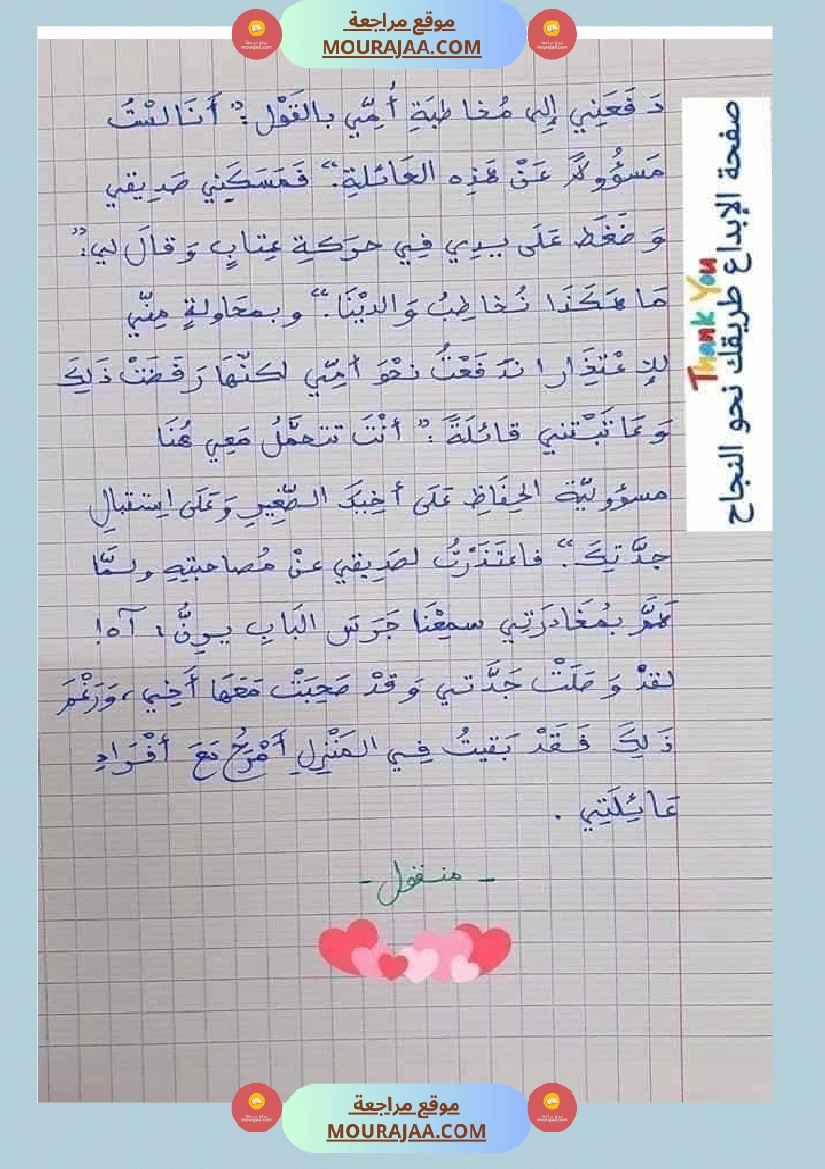 موقع مراجعة
MOURAJAA.COM
دَفَعَنِي إِلى مُخاطَبَةِ أُمِّي بالقَوْل: "أَنَا لسْتُ
مَسْؤُولاً عَنْ هَذِه العَائلةِ." فَمَسَكَنِي صَدِيقي
وَ ضَغَط عَلَى يدِي فِي حرَكةِ عِتابٍ وَ قالَ لي: "
مَا هَكَذَا نُخاطِبُ وَالديْنَا." وبمحَاولةٍ مِنّي
للإعْتِذَار اندَفَعْتُ نحْوَ أمِّي لكنّهَا رَفَضَتْ ذَلِكَ
وَعَاتَبَتْنني قائلَةً: "أنْتَ تتحمَّلُ مَعِي هُنَا
مسؤوليّة الحِفَاظِ عَلَى أخِيكَ الصّغِيرِ وَعَلَى اِستقبالِ
جدَّتِكَ." فاعتَذَرْتُ لصَدِيقي عنْ مُصاحبتِهِ ولمَّا
هَمَّ بمُغَادَرَتِي سمِعْنَا جَرَسَ البَابِ يرِنُّ: آه!
لقدْ وَصَلَتْ جَدَّتي وَقدْ صَحِبَتْ مَعَهَا أَخِي، وَرَغْمَ
ذَلِكَ فَقَدْ بَقيتُ فِي المَنْزِلِ أَمْرَحُ مَعَ أفْرَادِ
عَائِلَتِي.
- منقول -
صفحة الإبداع طريقك نحو النجاح
Thank You
موقع مراجعة
MOURAJAA.COM